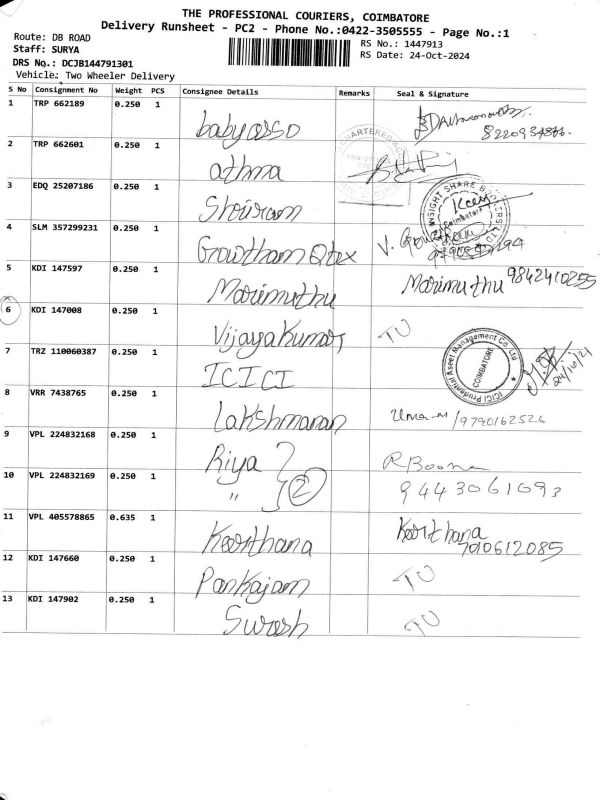 THE PROFESSIONAL COURIERS, COIMBATORE
Delivery Runsheet - PC2 - Phone No.:0422-3505555 - Page No.:1
Route: DB ROAD
Staff: SURYA
DRS No.: DCJB144791301
Vehicle: Two Wheeler Delivery
RS No.: 1447913
RS Date: 24-Oct-2024
S No Consignment No Weight PCS Consignee Details Remarks Seal & Signature
1 TRP 662189 0.250 1
2 TRP 662601 0.250 1 athma
3 EDQ 25207186 0.250 1 Shriram
INSIGHT SHARE BROKERS LTD
Coimbatore
4 SLM 357299231 0.250 1 Gowtham
5 KDI 147597 0.250 1 Marimuthu Marimuthu 9842410255
6 KDI 147008 0.250 1 Vijayakumar TU
7 TRZ 110060387 0.250 1 ICICI
ICICI Prudential Asset Management Co Ltd
COIMBATORE
8 VRR 7438765 0.250 1 Lakshmanan Uma 9790162526
9 VPL 224832168 0.250 1 Riya R Boome
10 VPL 224832169 0.250 1 " 2 9443061093
11 VPL 405578865 0.635 1 Keerthana Keerthana
7010612085
12 KDI 147660 0.250 1 Pankajam TU
13 KDI 147902 0.250 1 Suresh TU